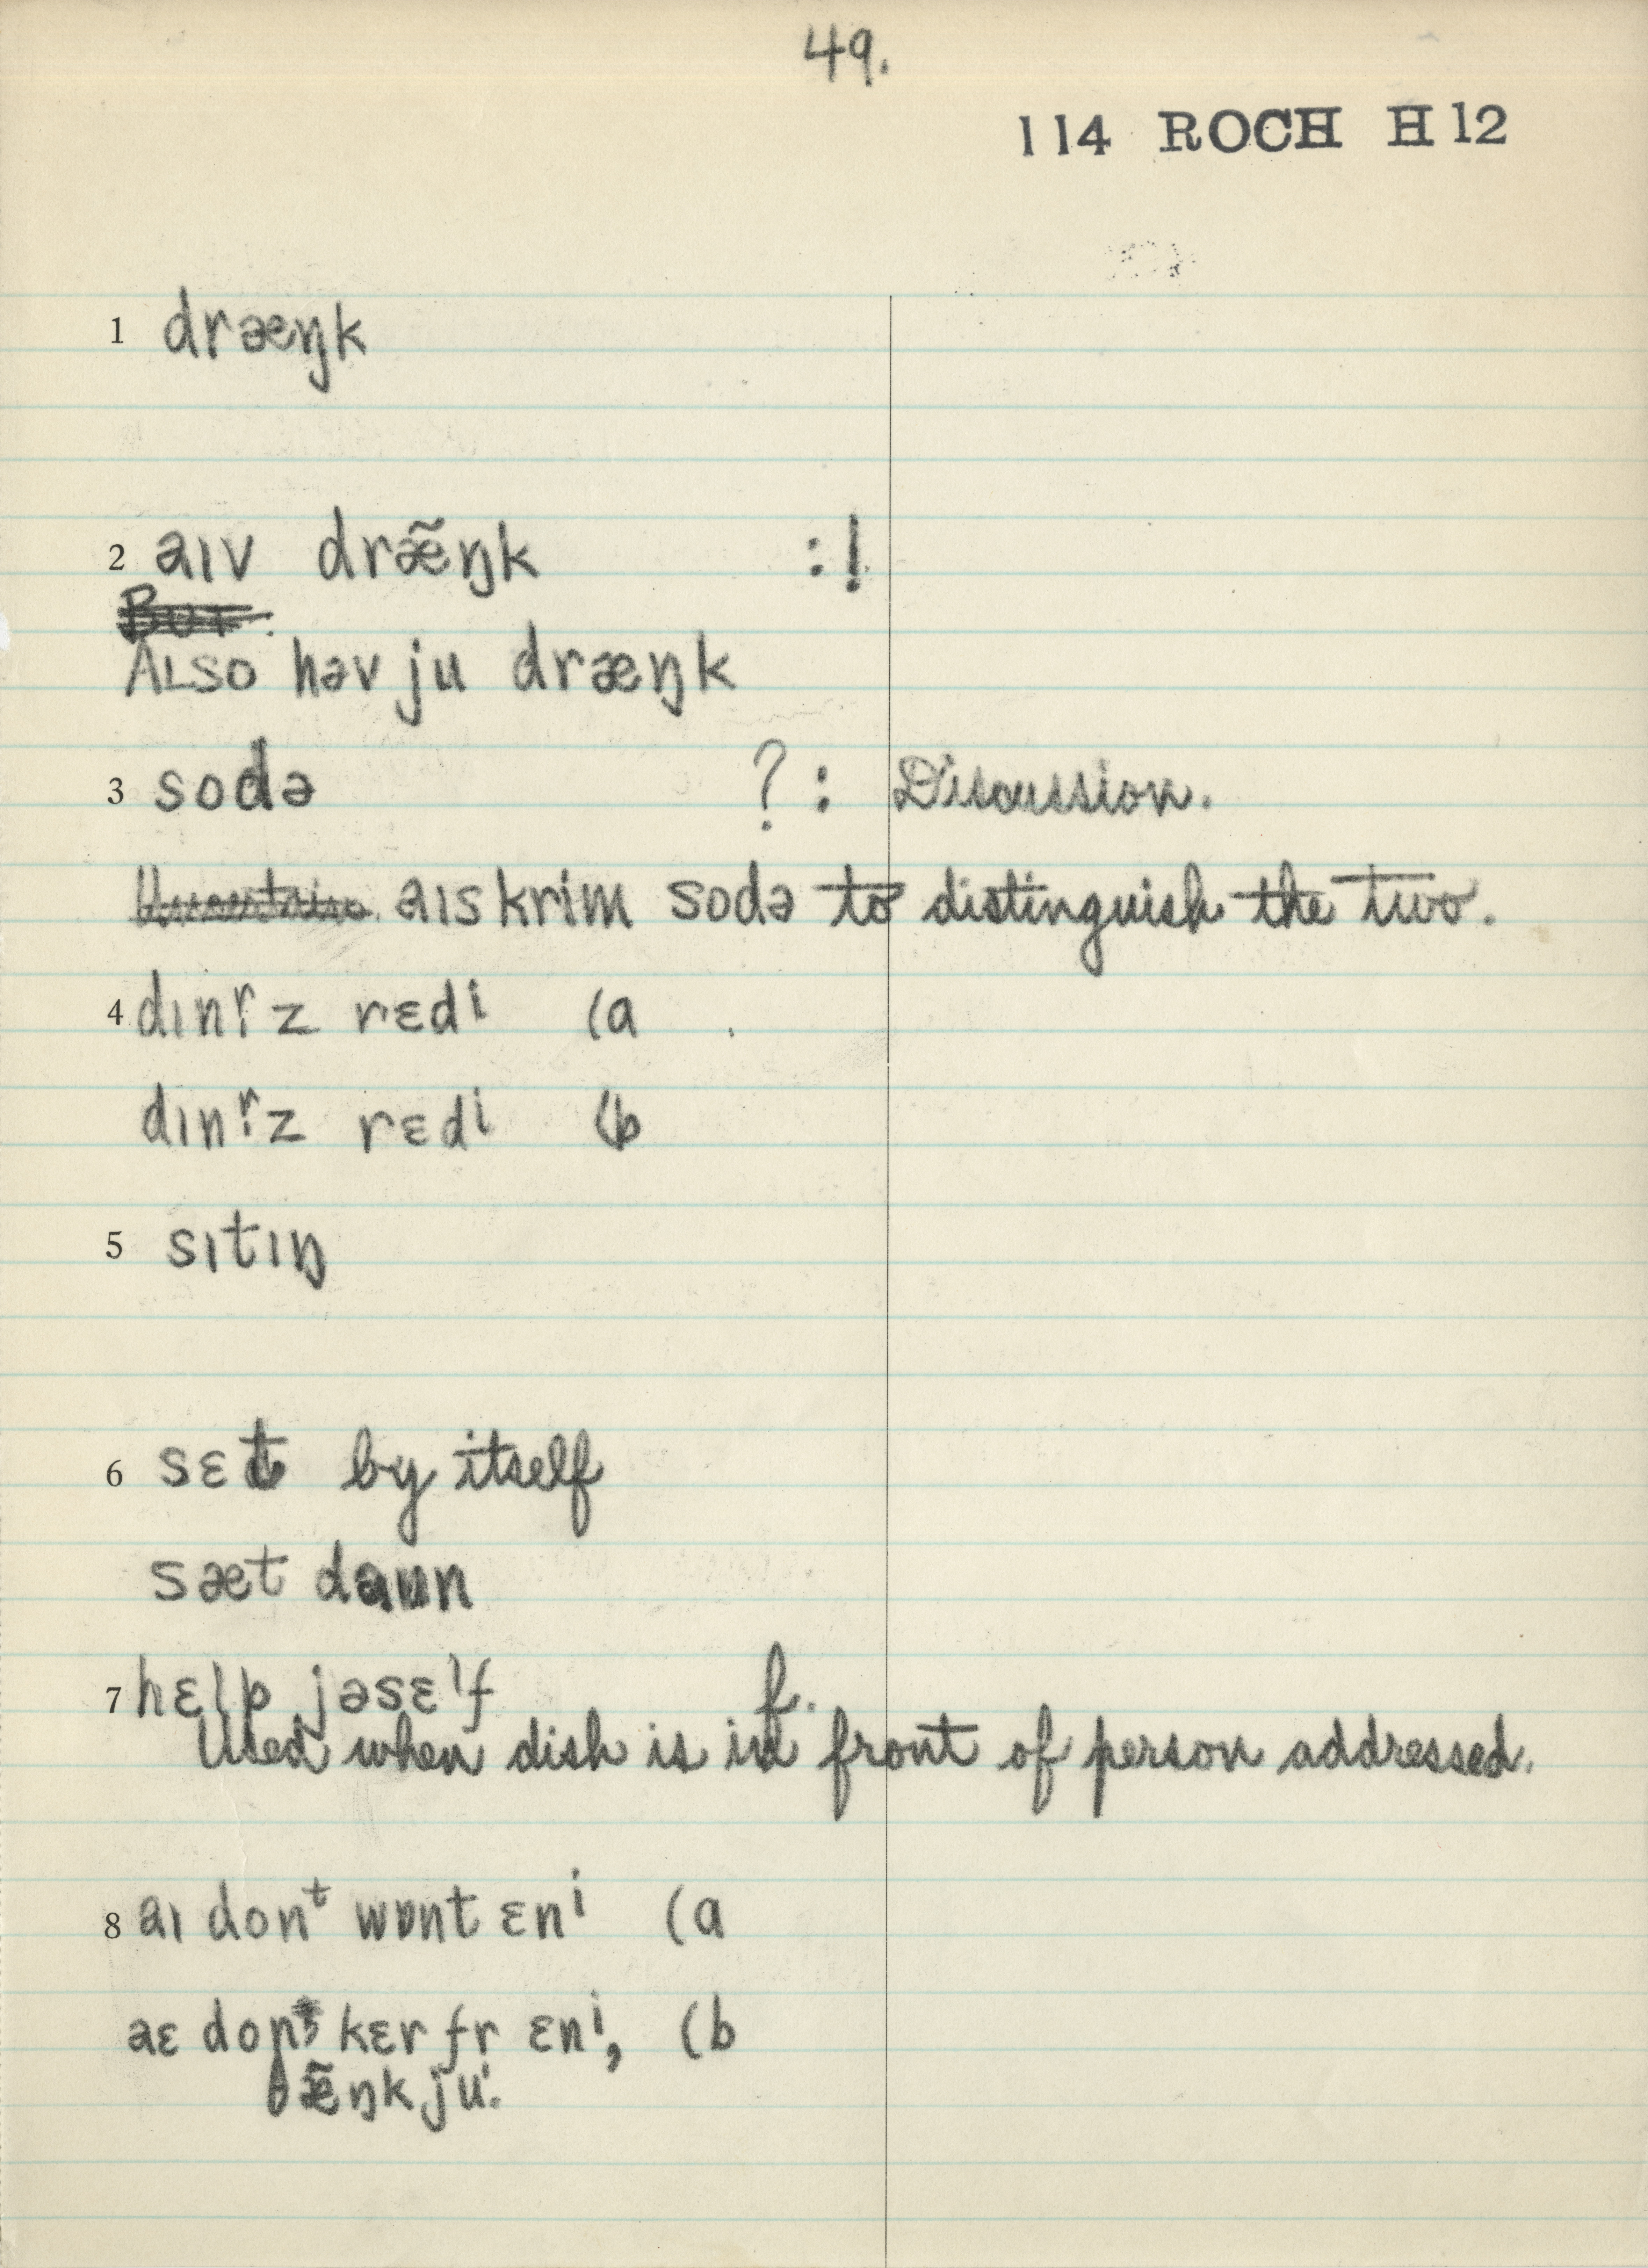 49.
114 ROCH H12
1 dræŋk
2 aɪv dræ̃ŋk :!
ALSO həv ju dræŋk
3 sodə ?: Discussion.
aɪskrim sodə to distinguish the two.
4 dɪnr̩z rɛdⁱ (a
dɪnr̩z rɛdⁱ (b
5 sɪtɪŋ
6 sɛt by itself
sæt daun
7 hɛlp jəsɛˡf f.
Used when dish is in front of person addressed.
8 aɪ donᵗ wɒnt ɛnⁱ (a
aɛ kɛr fr ɛnⁱ, (b
θæ̃ŋk ju.